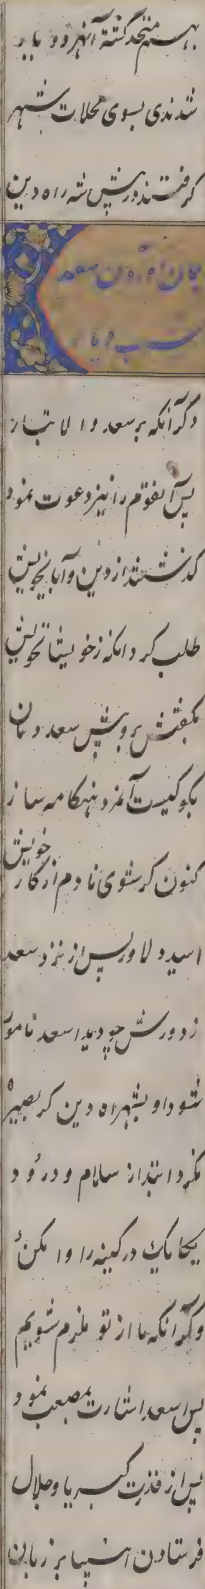 بهم متحد گشته آنهر دو یار
شدندی بسوی محلات شهر
گرفتند در پیش شه راه دین
دگر آنکه بر سعد والا تبار
پس آنقوم را نیز دعوت نمود
گذشتند از دین و آبای خویش
طلب کرد آنکه ز خویشان خویش
بگفتش برو پیش سعد دمان
بگو کیست آنمرد هنگامه ساز
کنون گر شوی نادم از کار خویش
اسید دلاور پس از نزد سعد
ز دورش چو دید اسعد نامور
شود او بشهراه دین گر بصیر
نکرد ابتدا از سلام و درود
یکایک در کینه را وا مکن
وگر آنکه ما از تو ملزم شویم
پس اسعد اشارت بمصعب نمود
پس از قدرت کبریا و جلال
فرستادن انبیا بر زمان